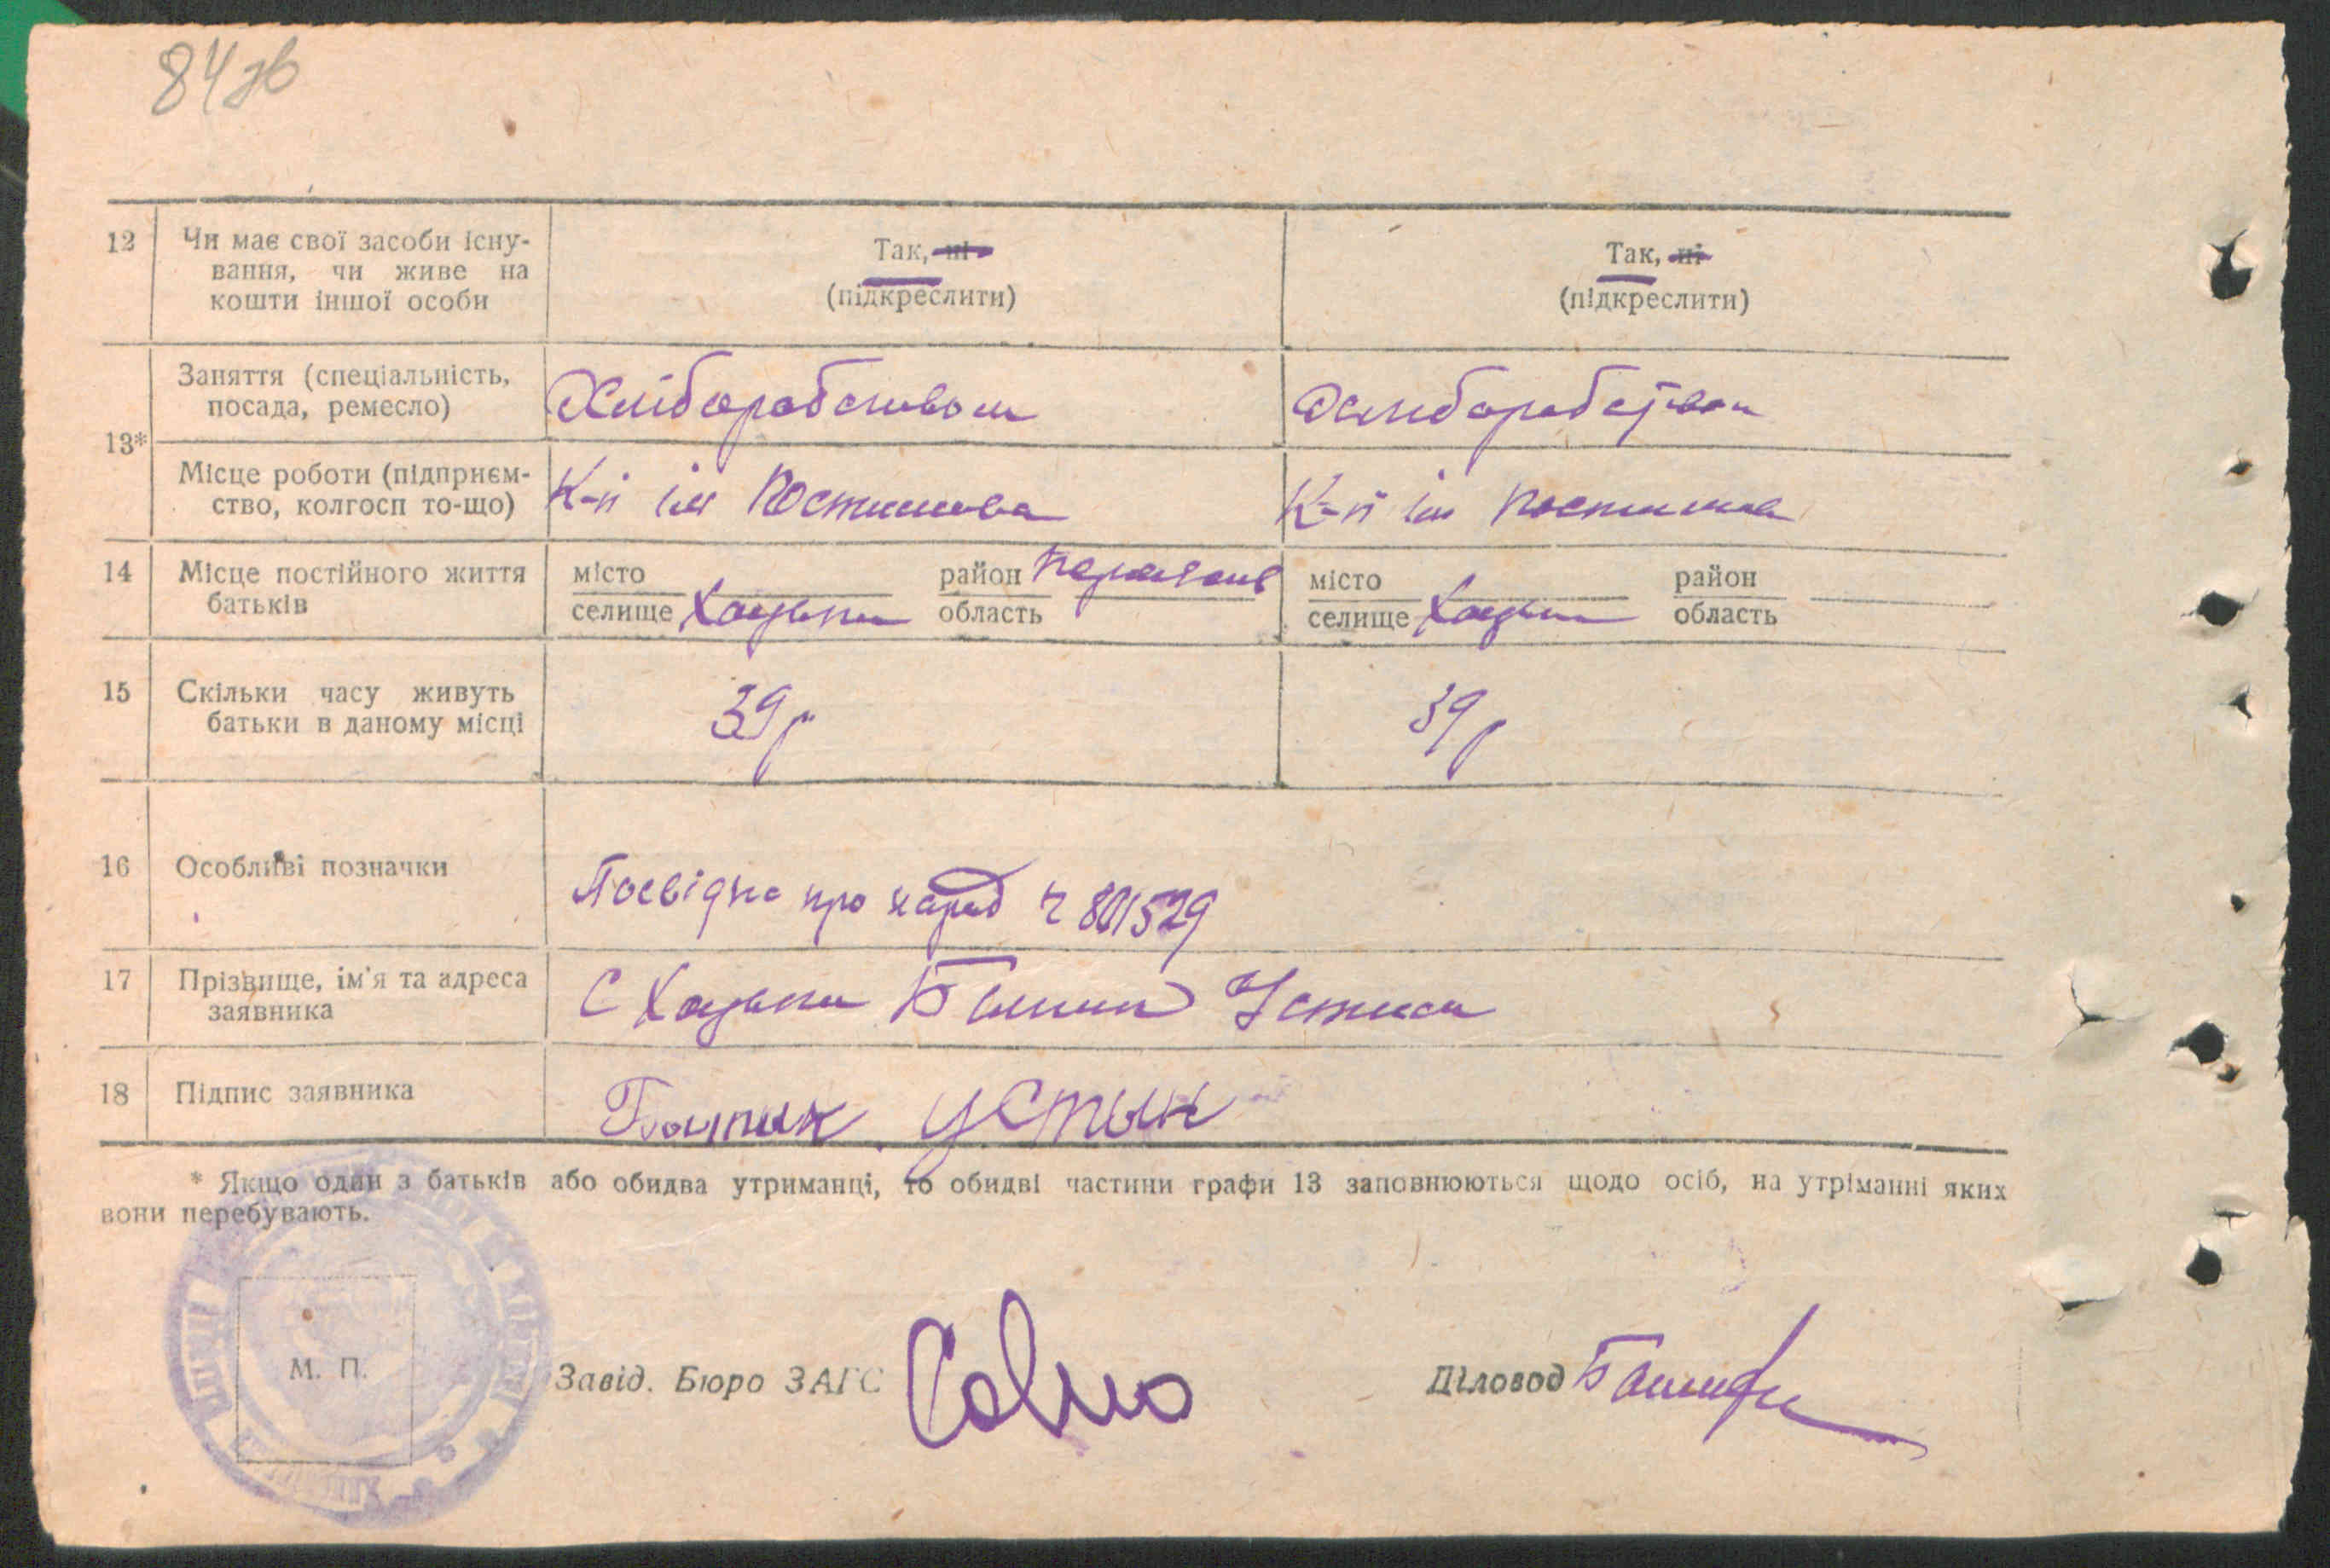 84 зв
12 Чи має свої засоби існу-
вання, чи живе на
кошти іншої особи
Так, ні
(підкреслити)
Так, ні
(підкреслити)
13*
Заняття (спеціальність,
посада, ремесло)
Хліборобством
Хліборобством
Місце роботи (підприєм-
ство, колгосп то-що)
К-п ім Постишева
К-п ім Постишева
14 Місце постійного життя
батьків
місто
селище Хоцьки
район
область
місто
селище Хоцьки
район
область
15 Скільки часу живуть
батьки в даному місці
39 р
39 р
16 Особливі позначки
Посвідка про народ ч 801529
17 Прізвище, ім'я та адреса
заявника
С Хоцьки Устин
18 Підпис заявника
Устын
* Якщо один з батьків або обидва утриманці, то обидві частини графи 13 заповнюються щодо осіб, на утріманні яких
вони перебувають.
М. П.
Завід. Бюро ЗАГС
Діловод